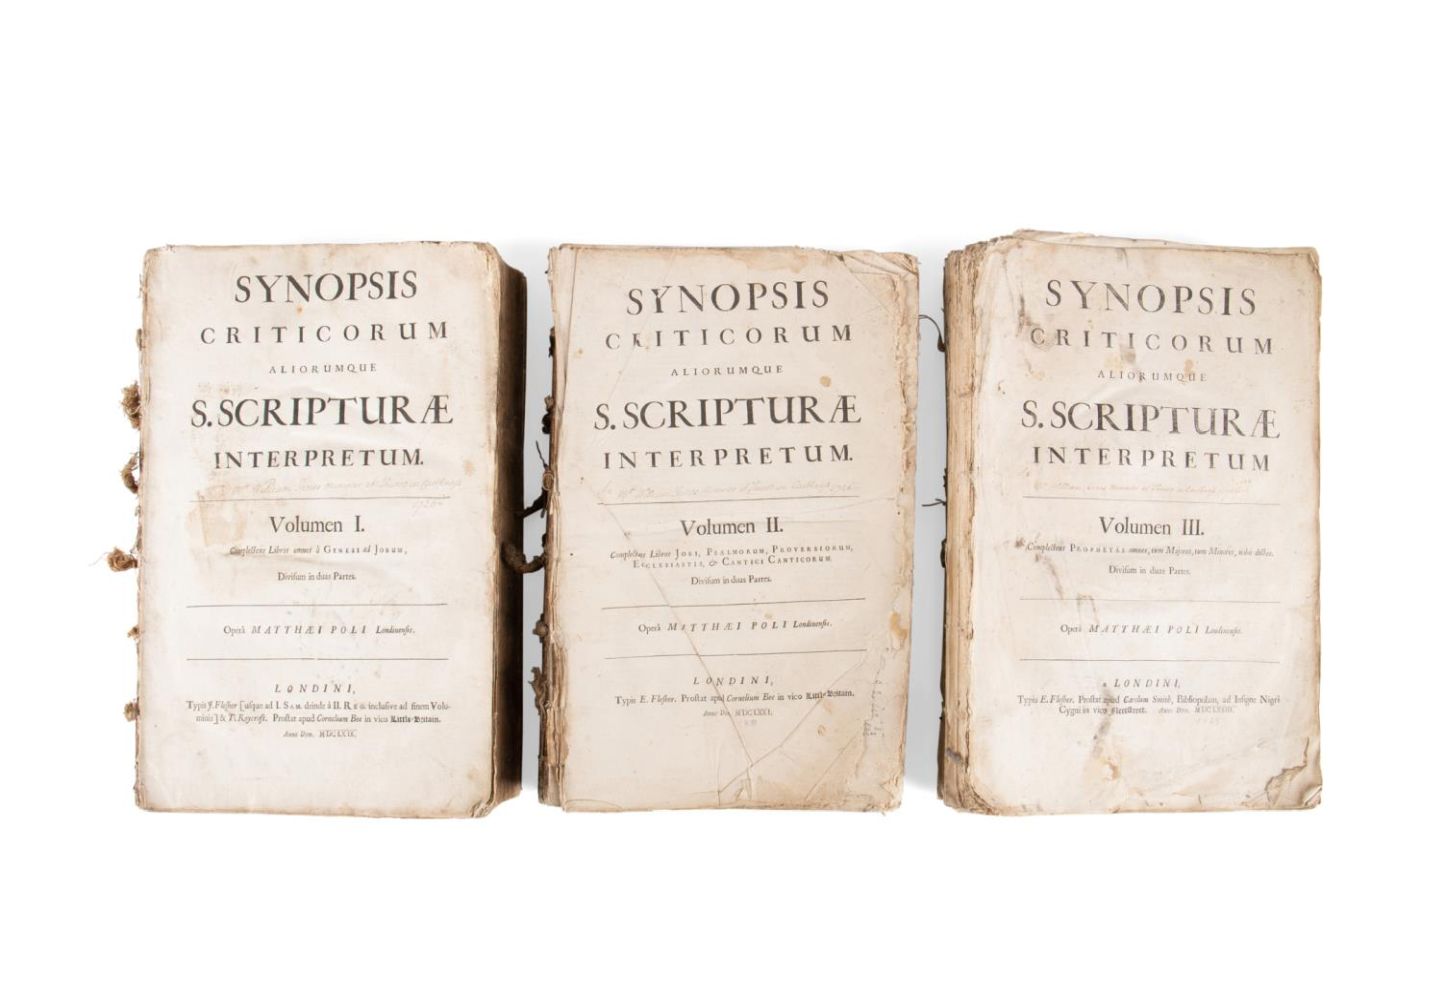 SYNOPSIS
CRITICORUM
ALIORUMQUE
S. SCRIPTURÆ
INTERPRETUM.
Volumen I.
Complectens Libros omnes à GENESI ad JOBUM,
Divisum in duas Partes.
Operâ MATTHÆI POLI Londinensis.
LONDINI,
Typis J. Flesher [usque ad I. SAM. deinde à II. REG. inclusive ad finem Volu-
minis] & T. Roycroft. Prostat apud Cornelium Bee in vico Little-Britain.
Anno Dom. MDCLXIX.
SYNOPSIS
CRITICORUM
ALIORUMQUE
S. SCRIPTURÆ
INTERPRETUM.
Volumen II.
Complectens Libros JOBI, PSALMORUM, PROVERBIORUM,
ECCLESIASTIS, & CANTICI CANTICORUM.
Divisum in duas Partes.
Operâ MATTHÆI POLI Londinensis.
LONDINI,
Typis E. Flesher. Prostat apud Cornelium Bee in vico Little-Britain.
Anno Dom. MDCLXXI.
SYNOPSIS
CRITICORUM
ALIORUMQUE
S. SCRIPTURÆ
INTERPRETUM
Volumen III.
Complectens PROPHETAS omnes, tum Majores, tum Minores, dictos.
Divisum in duas Partes.
Operâ MATTHÆI POLI Londinensis.
LONDINI,
Typis E. Flesher. Prostat apud Carolum Smith, Bibliopolam, ad Insigne Nigri
Cygni in vico Fleetstreet. Anno Dom.